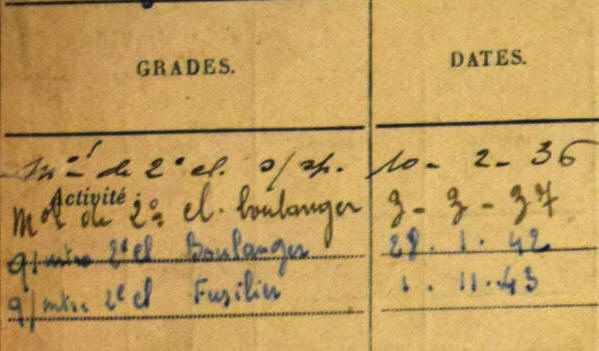 GRADES. DATES.
Mot de 2e cl. s/sp. 10 - 2 - 36
Activité :
Mot de 2e cl. boulanger 3 - 3 - 37
q/mtre 2e cl Boulanger 28. 1. 42
q/mtre 2e cl Fusilier 1. 11. 43